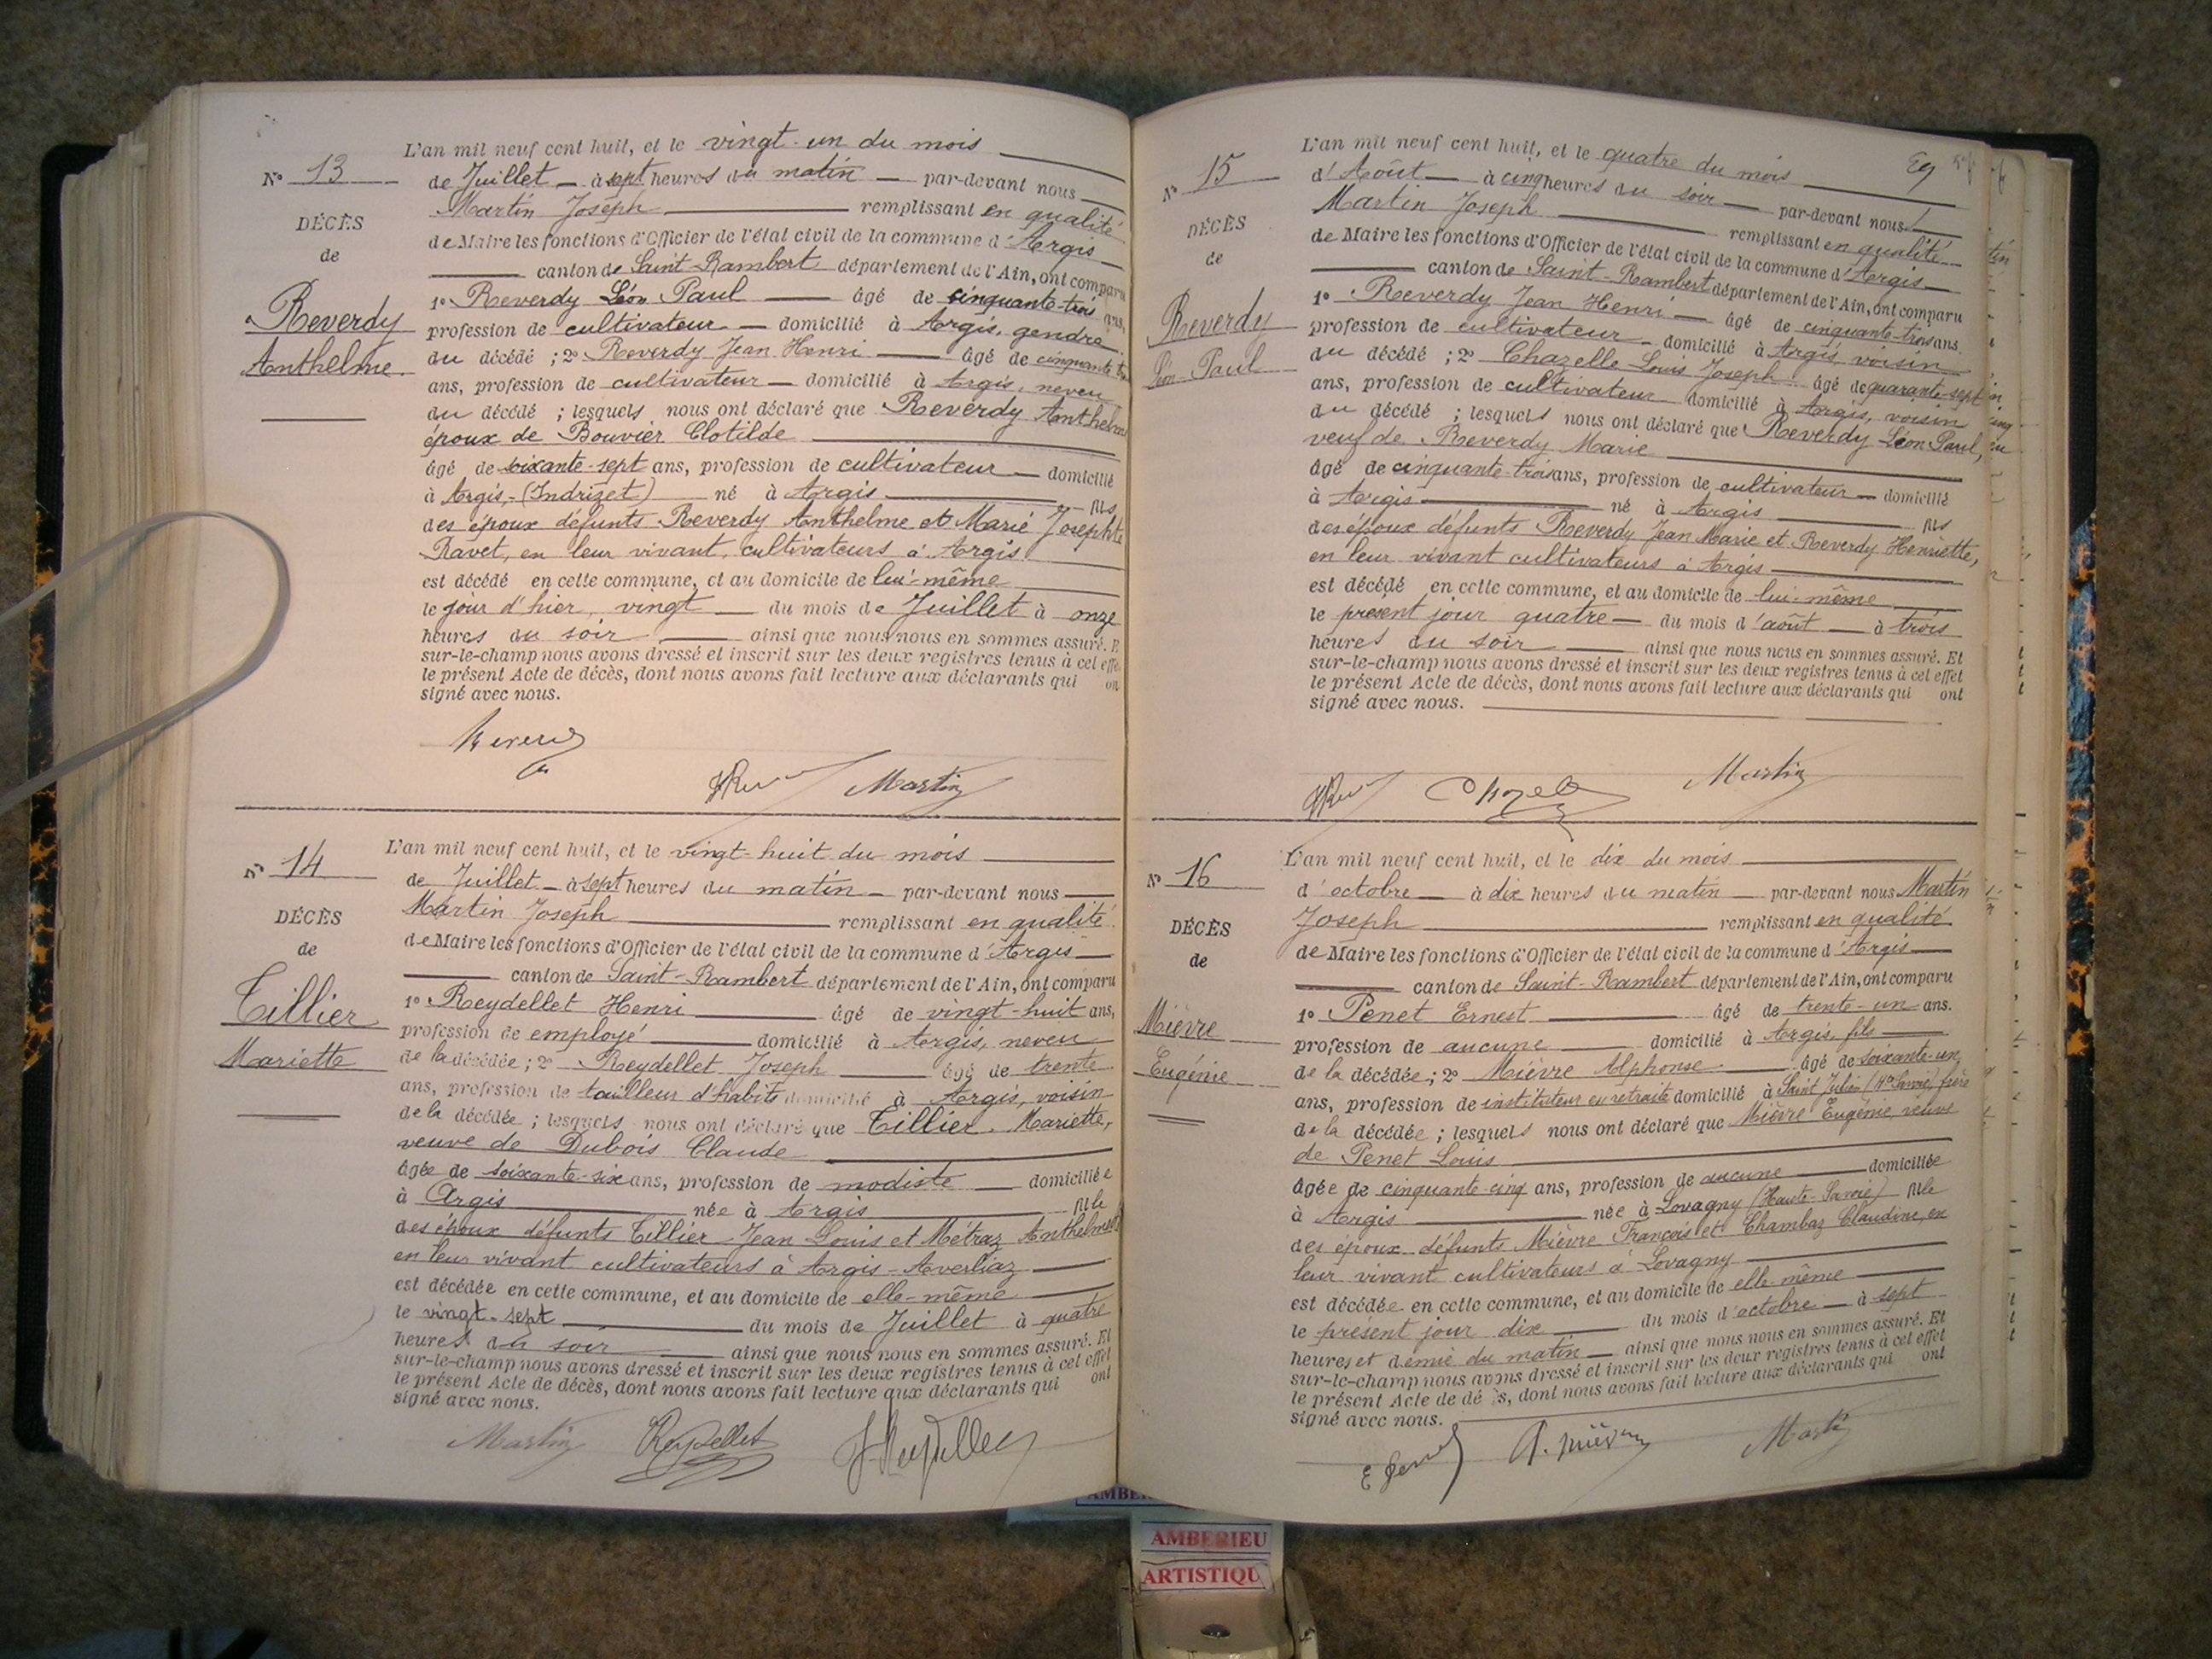 L'an mil neuf cent huit, et le vingt-un du mois
N° 13
de Juillet — à sept heures du matin — par-devant nous
Martin Joseph — remplissant en qualité
DÉCÈS
de Maire les fonctions d'Officier de l'état civil de la commune d'Argis
de
canton de Saint-Rambert département de l'Ain, ont comparu
1° Reverdy Léon Paul — âgé de cinquante-trois ans,
Reverdy
profession de cultivateur — domicilié à Argis, gendre
Anthelme.
du décédé ; 2° Reverdy Jean Henri — âgé de cinquante
ans, profession de cultivateur — domicilié à Argis, neveu
du décédé ; lesquels nous ont déclaré que Reverdy Anthelme
époux de Bouvier Clotilde
âgé de soixante-sept ans, profession de cultivateur — domicilié
à Argis, (Indrizet) né à Argis — fils
des époux défunts Reverdy Anthelme et Marie Josephte
Ravet, en leur vivant, cultivateurs à Argis
est décédé en cette commune, et au domicile de lui-même
le jour d'hier, vingt — du mois de Juillet à onze
heures du soir — ainsi que nous nous en sommes assuré. E
sur-le-champ nous avons dressé et inscrit sur les deux registres tenus à cet effe
le présent Acte de décès, dont nous avons fait lecture aux déclarants qui on
signé avec nous.
Martin
L'an mil neuf cent huit, et le vingt-huit du mois
N° 14
de Juillet — à sept heures du matin — par-devant nous —
Martin Joseph — remplissant en qualité
DÉCÈS
de Maire les fonctions d'Officier de l'état civil de la commune d'Argis —
de
canton de Saint-Rambert département de l'Ain, ont comparu
Tillier
1° Reydellet Henri — âgé de vingt-huit ans,
profession de employé — domicilié à Argis, neveu
Mariette
de la décédée ; 2° Reydellet Joseph — âgé de trente
ans, profession de tailleur d'habits domicilié à Argis, voisin
de la décédée ; lesquels nous ont déclaré que Tillier Mariette,
veuve de Dubois Claude
âgée de soixante-six ans, profession de modiste — domiciliée
à Argis — née à Argis — fille
des époux défunts Tillier Jean Louis et Métraz Anthelmette
en leur vivant cultivateurs à Argis-Averliaz —
est décédée en cette commune, et au domicile de elle-même
le vingt-sept — du mois de Juillet à quatre
heures du soir — ainsi que nous nous en sommes assuré. Et
sur-le-champ nous avons dressé et inscrit sur les deux registres tenus à cet effet
le présent Acte de décès, dont nous avons fait lecture aux déclarants qui ont
signé avec nous.
Martin Reydellet J. Reydellet
L'an mil neuf cent huit, et le quatre du mois
N° 15
d'Août — à cinq heures du soir — par-devant nous
Martin Joseph — remplissant en qualité
DÉCÈS
de Maire les fonctions d'Officier de l'état civil de la commune d'Argis
de
canton de Saint-Rambert département de l'Ain, ont comparu
1° Reverdy Jean Henri — âgé de cinquante-trois ans
Reverdy
profession de cultivateur — domicilié à Argis, voisin
Léon Paul
du décédé ; 2° Chazelle Louis Joseph âgé de quarante-sept
ans, profession de cultivateur domicilié à Argis, voisin
du décédé ; lesquels nous ont déclaré que Reverdy Léon Paul,
veuf de Reverdy Marie
âgé de cinquante-trois ans, profession de cultivateur — domicilié
à Argis — né à Argis — fils
des époux défunts Reverdy Jean Marie et Reverdy Henriette,
en leur vivant cultivateurs à Argis
est décédé en cette commune, et au domicile de lui-même
le présent jour quatre — du mois d'août — à trois
heures du soir — ainsi que nous nous en sommes assuré. Et
sur-le-champ nous avons dressé et inscrit sur les deux registres tenus à cet effet
le présent Acte de décès, dont nous avons fait lecture aux déclarants qui ont
signé avec nous.
Martin
L'an mil neuf cent huit, et le dix du mois
N° 16
d'octobre — à dix heures du matin — par-devant nous Martin
Joseph — remplissant en qualité
DÉCÈS
de Maire les fonctions d'Officier de l'état civil de la commune d'Argis —
de
canton de Saint-Rambert département de l'Ain, ont comparu
1° Penet Ernest — âgé de trente-un ans.
Mièvre
profession de aucune — domicilié à Argis, fils
Eugénie
de la décédée ; 2° Mièvre Alphonse — âgé de soixante-un
ans, profession de instituteur en retraite domicilié à Saint Julien (Hte Savoie) frère
de la décédée ; lesquels nous ont déclaré que Mièvre Eugénie, veuve
de Penet Louis
âgée de cinquante-cinq ans, profession de aucune — domiciliée
à Argis — née à Lovagny (Haute-Savoie) fille
des époux défunts Mièvre François et Chambaz Claudine, en
leur vivant cultivateurs à Lovagny
est décédée en cette commune, et au domicile de elle-même
le présent jour dix — du mois d'octobre — à sept
heures et demie du matin — ainsi que nous nous en sommes assuré. Et
sur-le-champ nous avons dressé et inscrit sur les deux registres tenus à cet effet
le présent Acte de dé s, dont nous avons fait lecture aux déclarants qui ont
signé avec nous.
Martin
AMBERIEU
ARTISTIQU